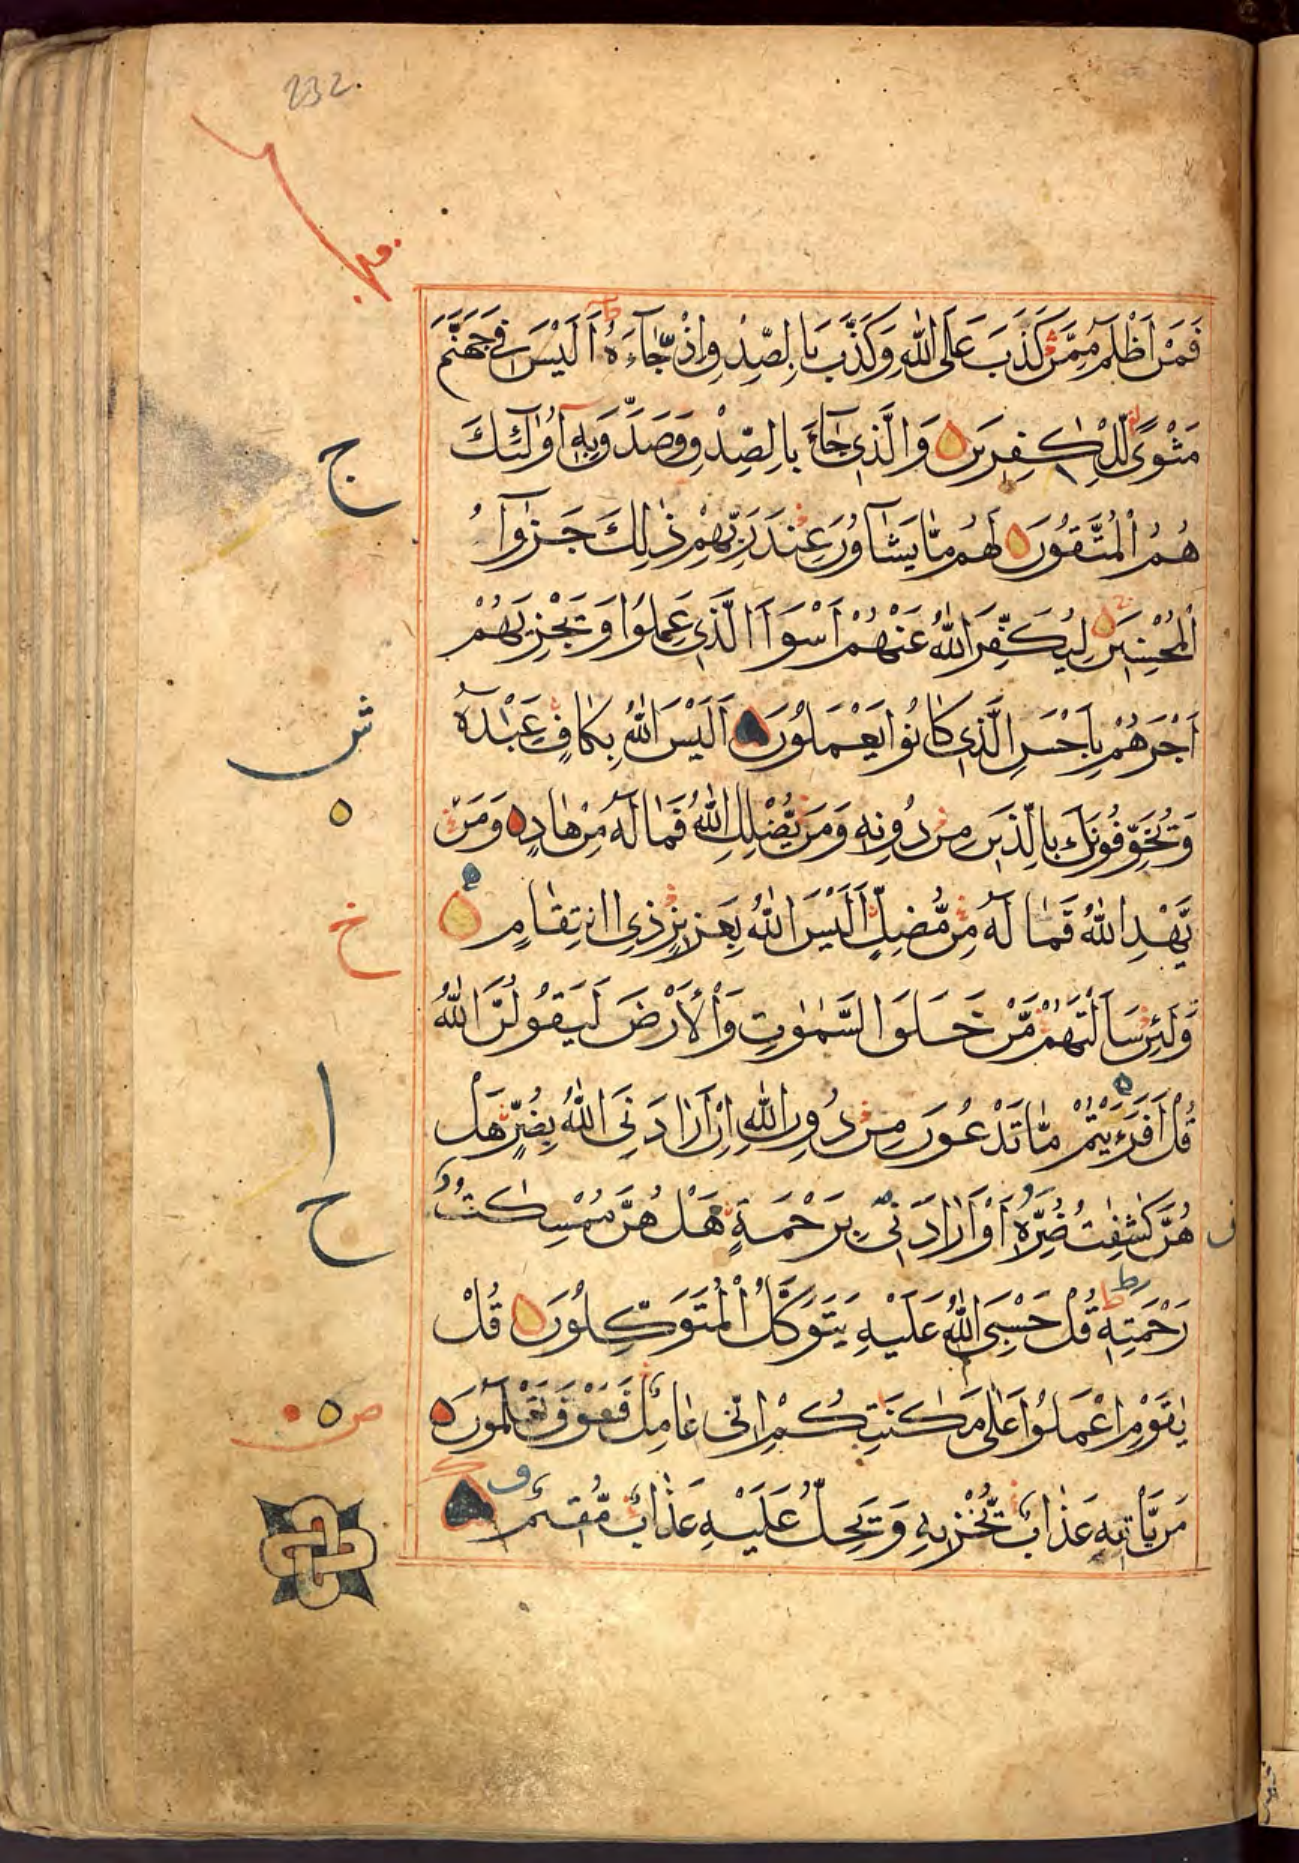 232
فَمَنْ اَظْلَمُ مِمَّنْ كَذَبَ عَلَى اللّٰهِ وَكَذَّبَ بِالصِّدْقِ اِذْ جَآءَهُ اَلَيْسَ فِي جَهَنَّمَ
مَثْوًى لِلْكٰفِرِينَ وَالَّذِي جَآءَ بِالصِّدْقِ وَصَدَّقَ بِهٖ اُولٰٓئِكَ
هُمُ الْمُتَّقُونَ لَهُمْ مَا يَشَآؤُنَ عِنْدَ رَبِّهِمْ ذٰلِكَ جَزٰٓؤُا
الْمُحْسِنِينَ لِيُكَفِّرَ اللّٰهُ عَنْهُمْ اَسْوَاَ الَّذِي عَمِلُوا وَيَجْزِيَهُمْ
اَجْرَهُمْ بِاَحْسَنِ الَّذِي كَانُوا يَعْمَلُونَ اَلَيْسَ اللّٰهُ بِكَافٍ عَبْدَهٗ
وَيُخَوِّفُونَكَ بِالَّذِينَ مِنْ دُونِهٖ وَمَنْ يُضْلِلِ اللّٰهُ فَمَا لَهٗ مِنْ هَادٍ وَمَنْ
يَهْدِ اللّٰهُ فَمَا لَهٗ مِنْ مُضِلٍّ اَلَيْسَ اللّٰهُ بِعَزِيزٍ ذِي انْتِقَامٍ
وَلَئِنْ سَاَلْتَهُمْ مَنْ خَلَقَ السَّمٰوٰتِ وَالْاَرْضَ لَيَقُولُنَّ اللّٰهُ
قُلْ اَفَرَءَيْتُمْ مَا تَدْعُونَ مِنْ دُونِ اللّٰهِ اِنْ اَرَادَنِيَ اللّٰهُ بِضُرٍّ هَلْ
هُنَّ كٰشِفٰتُ ضُرِّهٖ اَوْ اَرَادَنِي بِرَحْمَةٍ هَلْ هُنَّ مُمْسِكٰتُ
رَحْمَتِهٖ قُلْ حَسْبِيَ اللّٰهُ عَلَيْهِ يَتَوَكَّلُ الْمُتَوَكِّلُونَ قُلْ
يٰقَوْمِ اعْمَلُوا عَلٰى مَكَانَتِكُمْ اِنِّي عَامِلٌ فَسَوْفَ تَعْلَمُونَ
مَنْ يَاْتِيهِ عَذَابٌ يُخْزِيهِ وَيَحِلُّ عَلَيْهِ عَذَابٌ مُقِيمٌ
ج
ش
خ
ا
ح
ص